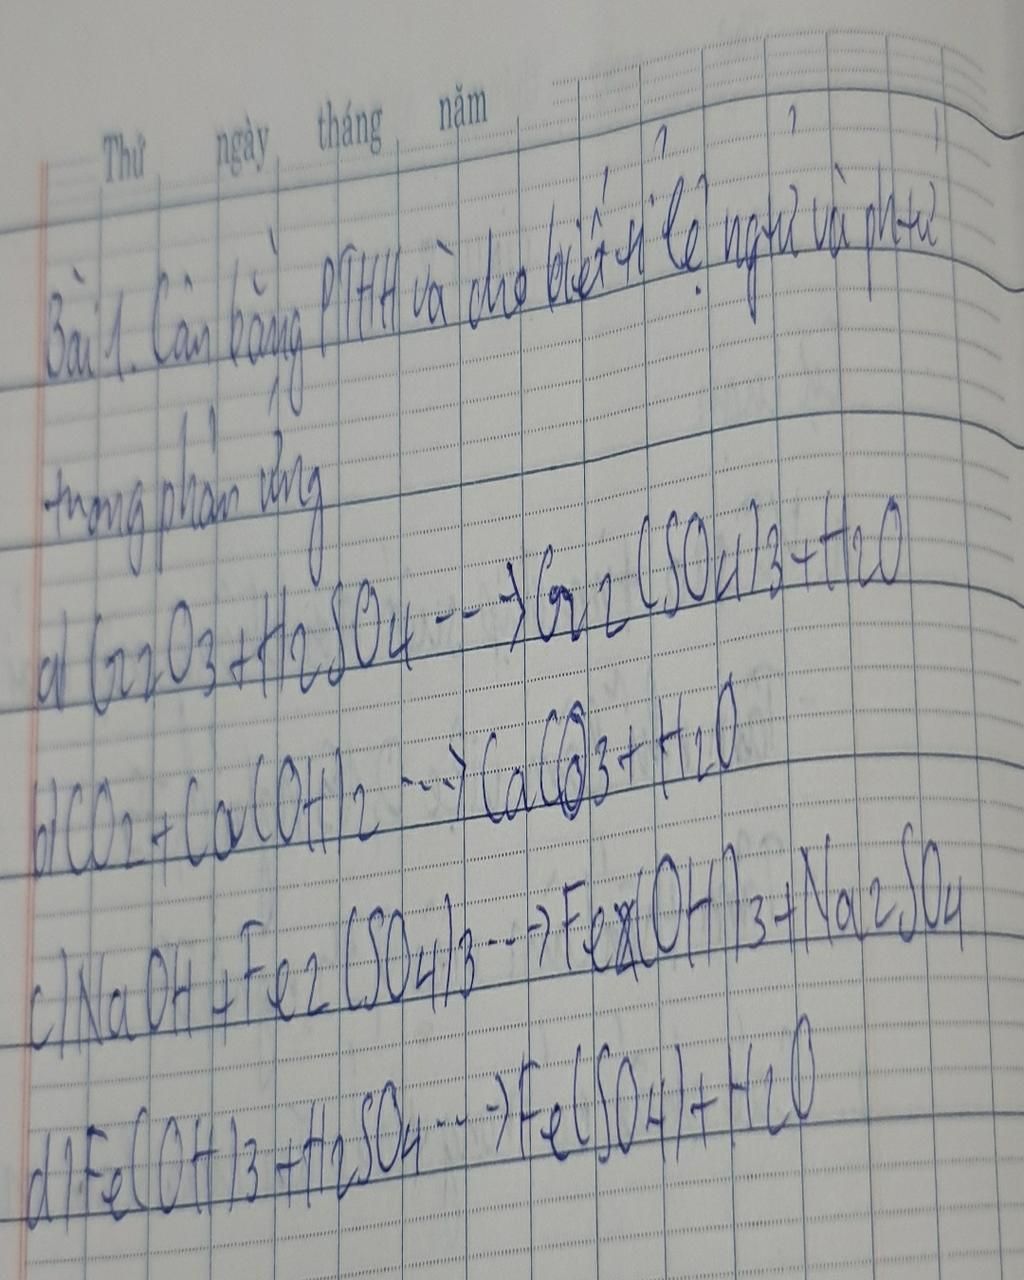 Thứ ngày tháng năm
Bài 1. Cân bằng PTHH và cho biết tỉ lệ ngtử và phtử
trong phản ứng
a) Cr2O3 + H2SO4 ---> Cr2(SO4)3 + H2O
b) CO2 + Ca(OH)2 ---> CaCO3 + H2O
c) NaOH + Fe2(SO4)3 ---> Fe(OH)3 + Na2SO4
d) Fe(OH)3 + H2SO4 ---> Fe(SO4) + H2O